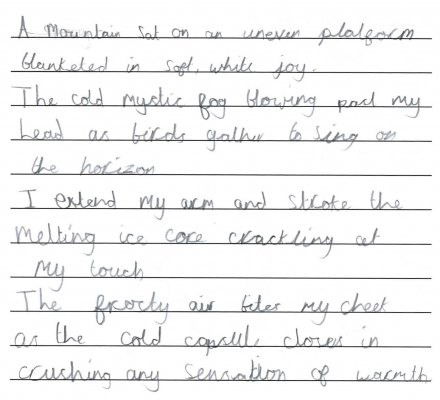 A Mountain sat on an uneven platform
blanketed in soft, white joy.
The cold mystic fog blowing past my
head as birds gather to sing on
the horizon
I extend my arm and stroke the
melting ice core crackling at
my touch
The frosty air bites my cheek
as the cold capsule closes in
crushing any sensation of warmth